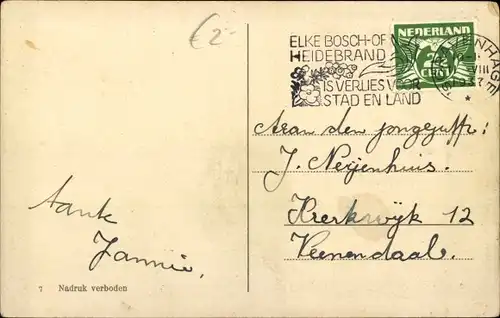 £ 2-
ELKE BOSCH- OF
HEIDEBRAND
IS VERLIES VOOR
STAD EN LAND
NEDERLAND
CENT
VIII
Aan den jongejuffr:
J. Neijenhuis.
Kerkwijk 12
Veenendaal.
tante
Jannie,
7 Nadruk verboden